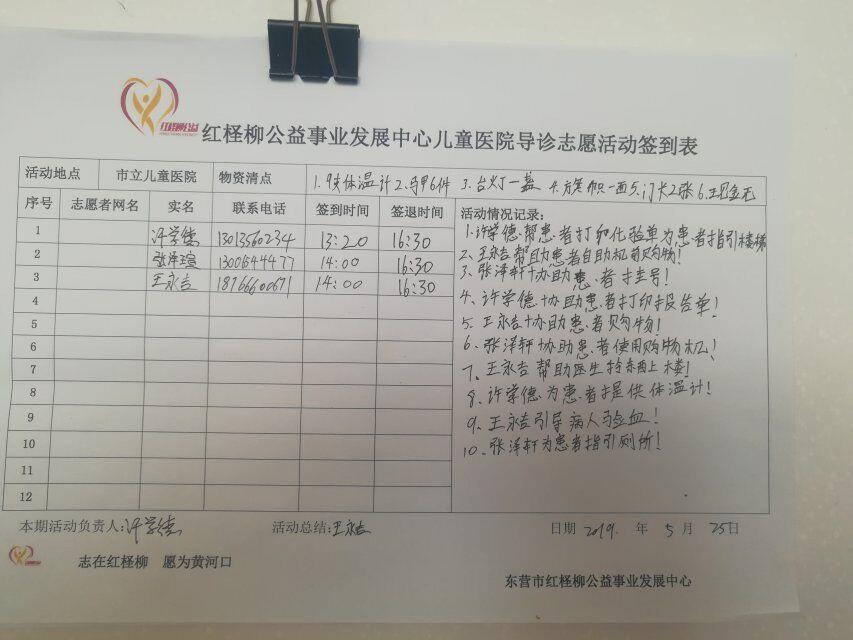 红柽柳公益
红柽柳公益事业发展中心儿童医院导诊志愿活动签到表
活动地点 市立儿童医院 物资清点 体温计2.马甲6件 3.台灯一盏 4.旗帜一面5.门长2张6.
序号 志愿者网名 实名 联系电话 签到时间 签退时间 活动情况记录:
1 许学德 13013560234 13:20 16:30 1.许学德帮患者打印化验单为患者指引楼梯
2 张泽瑄 13005444477 14:00 16:30 2、王永吉帮助患者自助机前购物!
3 王永吉 18766600671 14:00 16:30 3、张泽轩协助患者挂号!
4 4、许学德协助患者打印报告单!
5 5、王永吉协助患者购物!
6 6、张泽轩协助患者使用购物机!
7 7、王永吉帮助医生持东西上楼!
8 8、许学德为患者提供体温计!
9 9、王永吉引导病人验血!
10 10、张泽轩为患者指引厕所!
11
12
本期活动负责人:许学德 活动总结:王永吉 日期 2019. 年 5 月 25日
志在红柽柳 愿为黄河口
东营市红柽柳公益事业发展中心